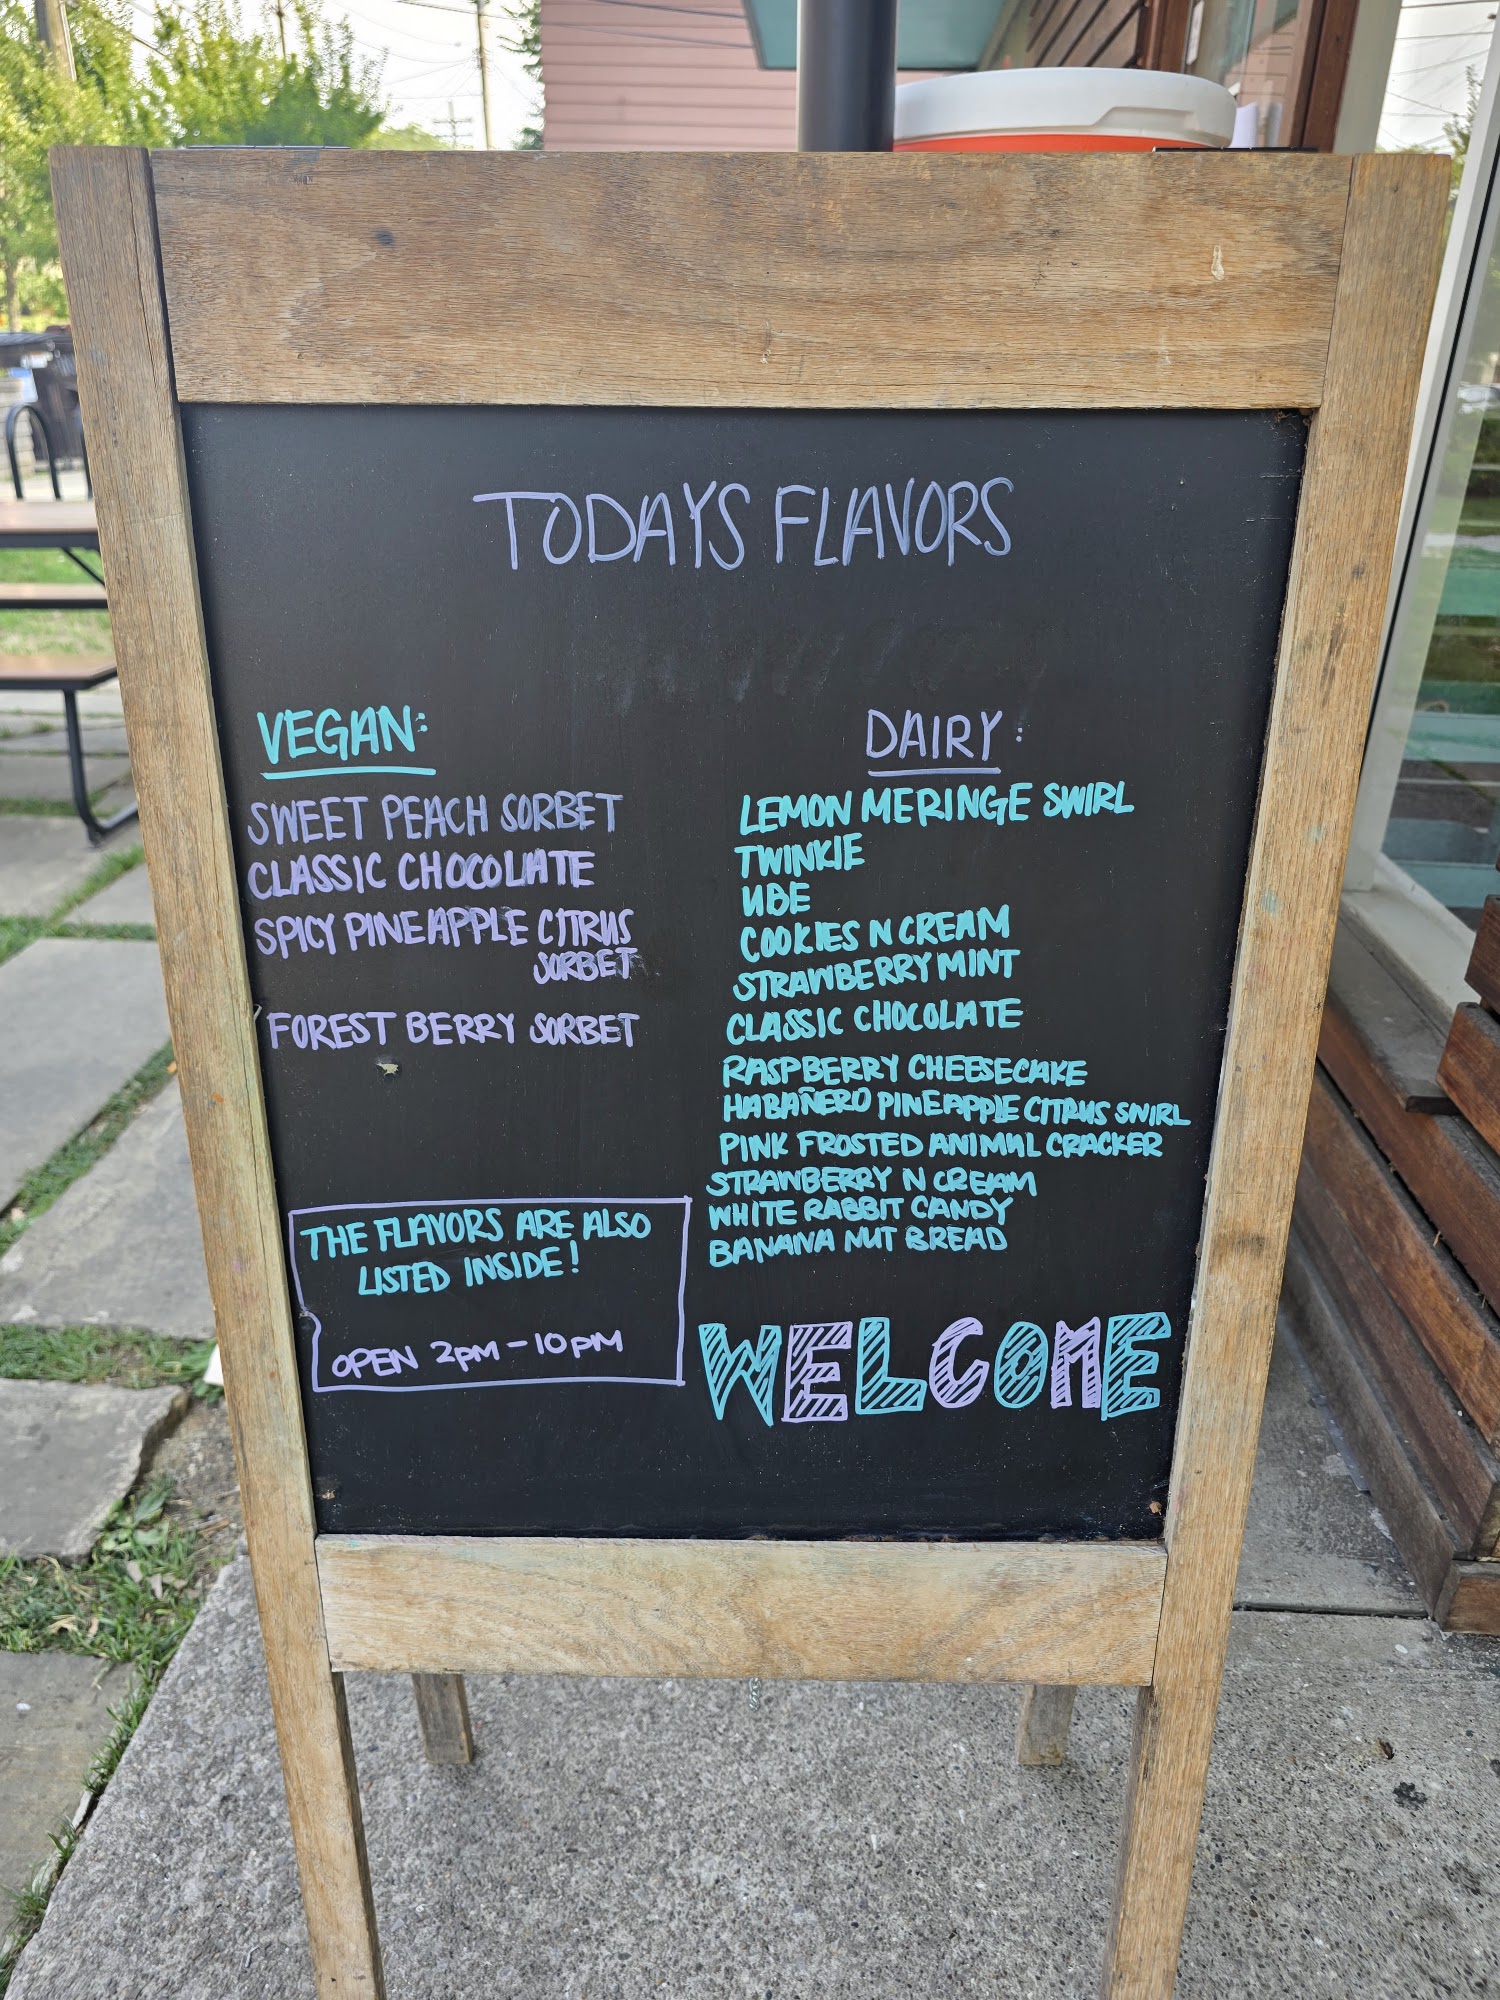 TODAYS FLAVORS
VEGAN:
SWEET PEACH SORBET
CLASSIC CHOCOLATE
SPICY PINEAPPLE CITRUS
SORBET
FOREST BERRY SORBET
DAIRY:
LEMON MERINGE SWIRL
TWINKIE
UBE
COOKIES N CREAM
STRAWBERRY MINT
CLASSIC CHOCOLATE
RASPBERRY CHEESECAKE
HABAÑERO PINEAPPLE CITRUS SWIRL
PINK FROSTED ANIMAL CRACKER
STRAWBERRY N CREAM
WHITE RABBIT CANDY
BANANA NUT BREAD
THE FLAVORS ARE ALSO
LISTED INSIDE!
OPEN 2PM-10PM
WELCOME